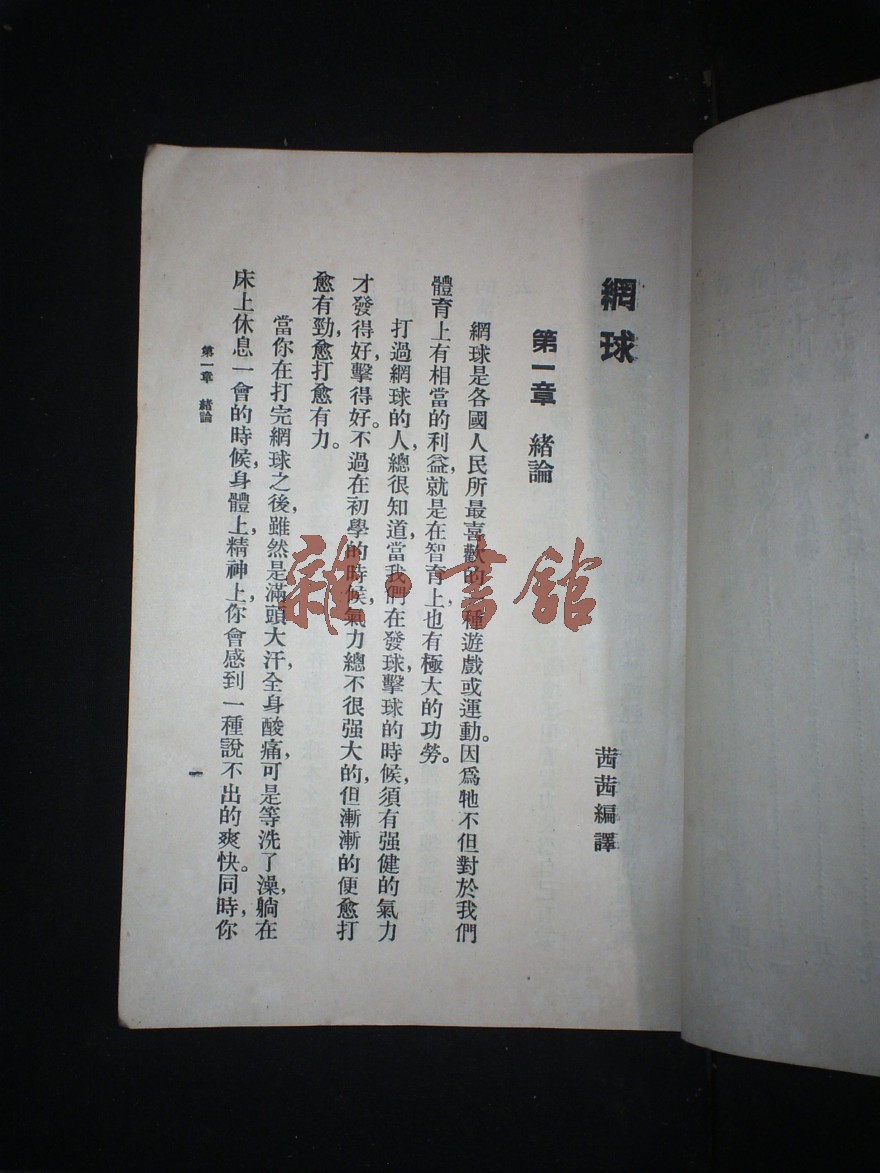 網球
茜茜編譯
第一章 緒論
網球是各國人民所最喜歡的一種遊戲或運動。因爲牠不但對於我們
體育上有相當的利益，就是在智育上也有極大的功勞。
打過網球的人，總很知道，當我們在發球，擊球的時候，須有强健的氣力
才發得好，擊得好。不過在初學的時候，氣力總不很强大的，但漸漸的便愈打
愈有勁，愈打愈有力。
當你在打完網球之後，雖然是滿頭大汗，全身酸痛，可是等洗了澡，躺在
床上休息一會的時候，身體上，精神上，你會感到一種說不出的爽快。同時，你
第一章 緒論
一
雜·書館